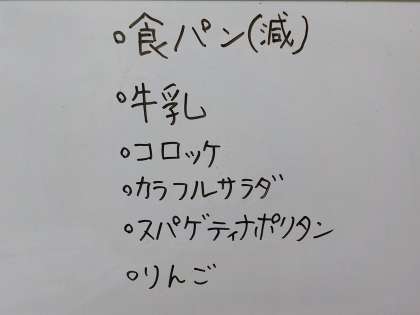 ○食パン(減)
○牛乳
○コロッケ
○カラフルサラダ
○スパゲティナポリタン
○りんご